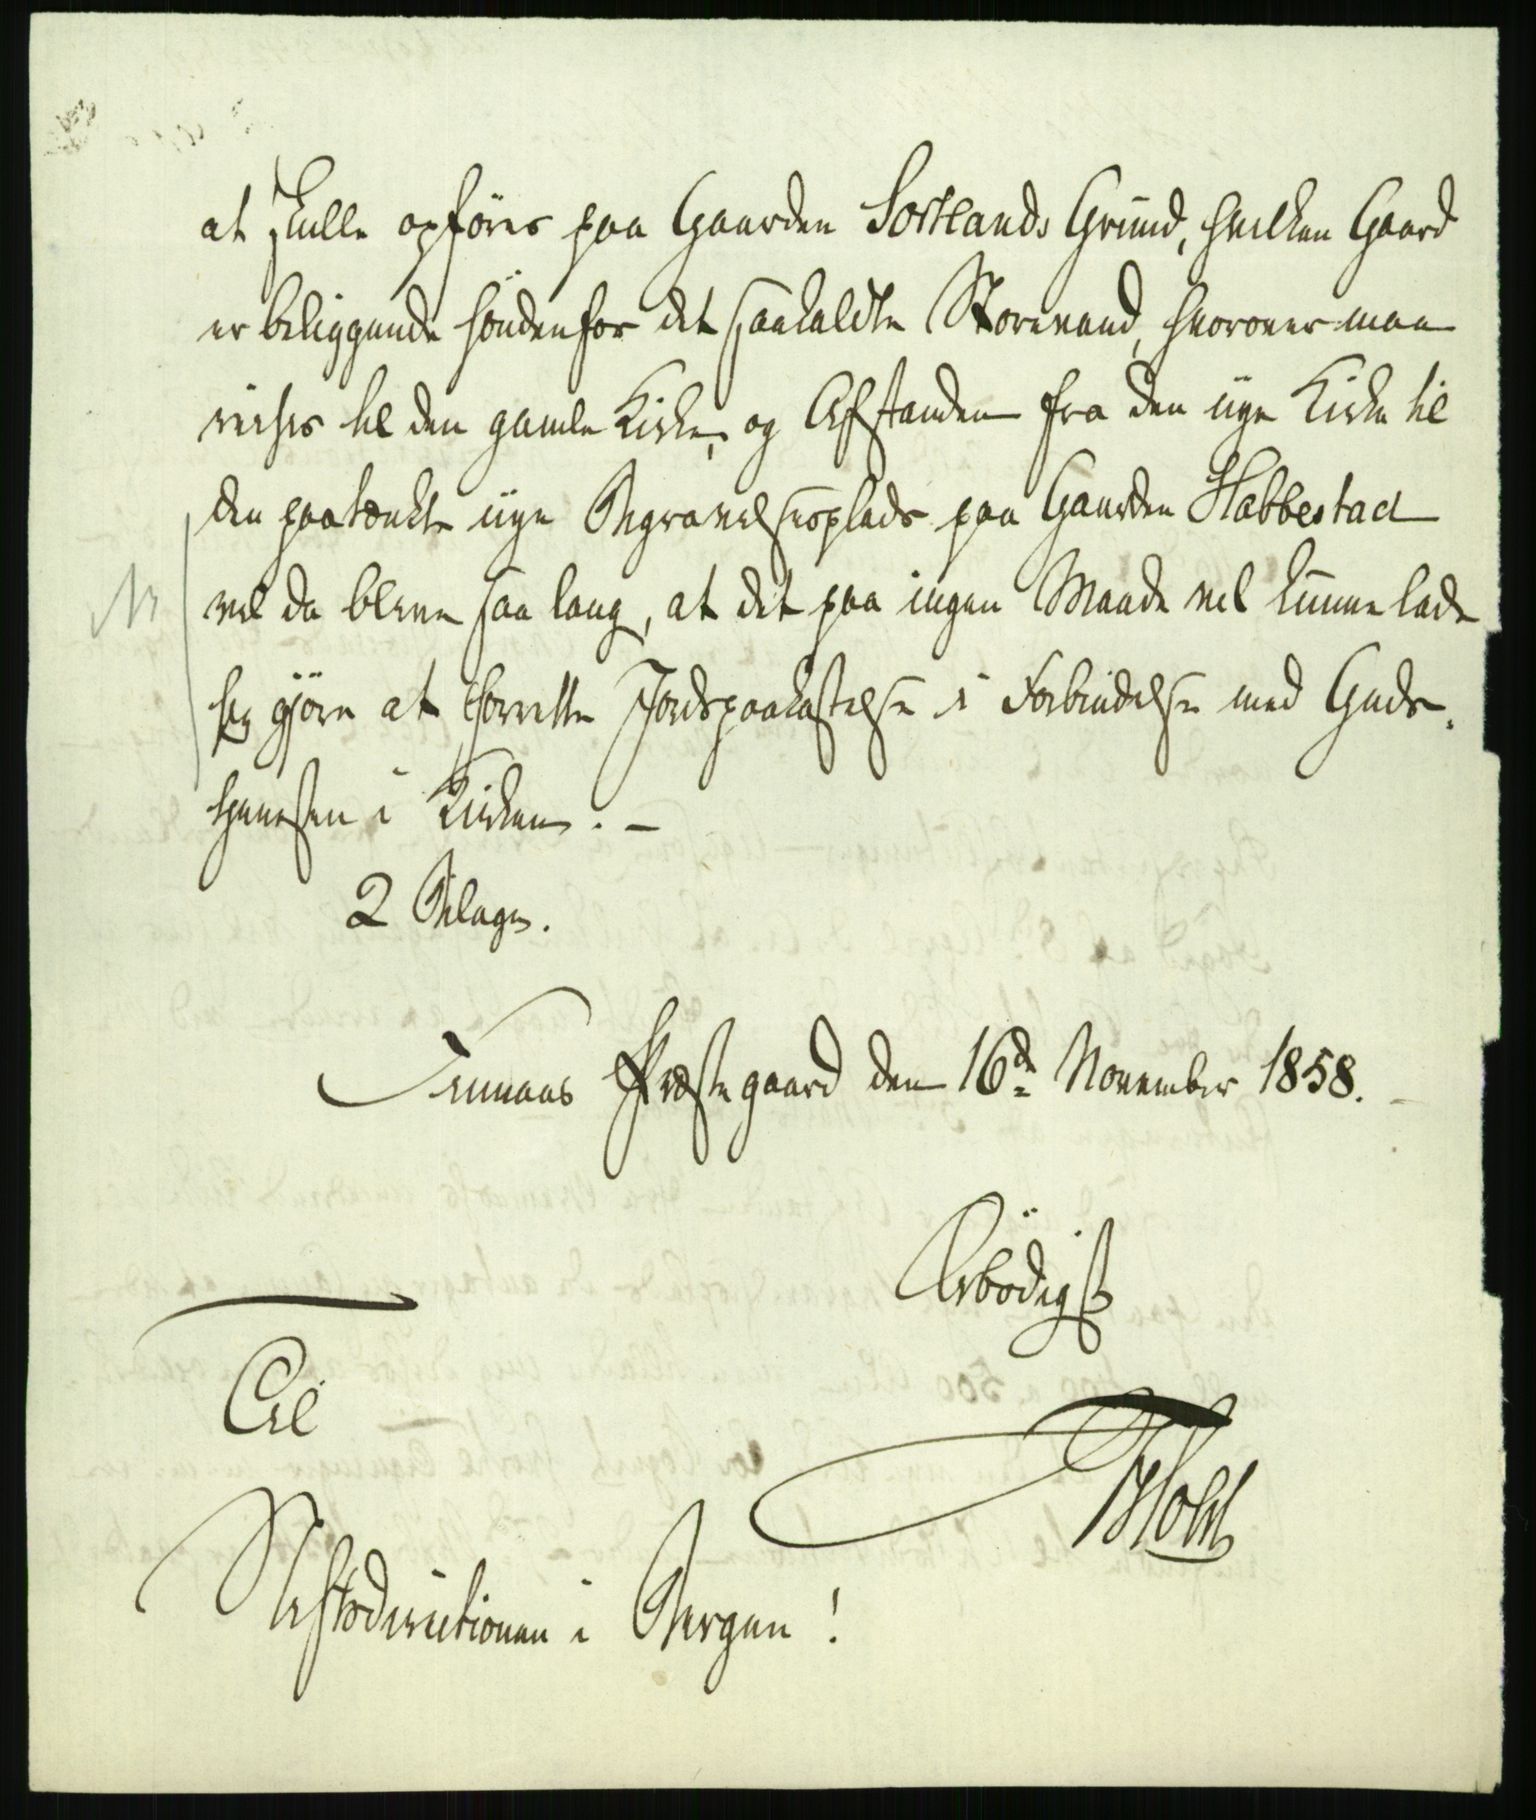 at skulle opføres paa Gaarden Sortlands Grund, hvilken Gaard
er beliggende søndenfor det saakaldte Storevand, hvorover man
reiser til den gamle Kirke, og Afstanden fra den nye Kirke til
den paatænkte nye Begravelsesplads paa Gaarden Habbestad
vil da blive saa lang, at det paa ingen Maade vil kunne lade
sig gjøre at forrette Jordspaakastelse i Forbindelse med Guds-
tjenesten i Kirken. -
2 Bilage.
Finnaas Præstegaard den 16de November 1858.
Ærbødigst
Til
Holst
Stiftsdirectionen i Bergen!